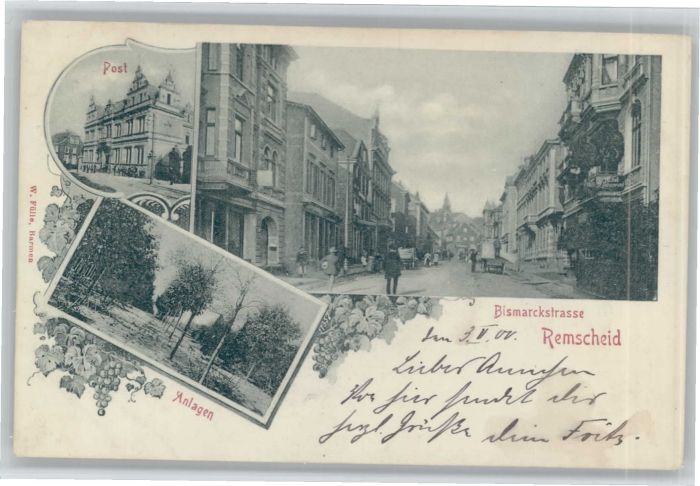 Post
W. Fülle, Barmen
Bismarckstrasse
Remscheid
Anlagen
den 3. V. 00.
Liebes Annchen
Von hier sendet dir
herzl. Grüße dein Fritz.